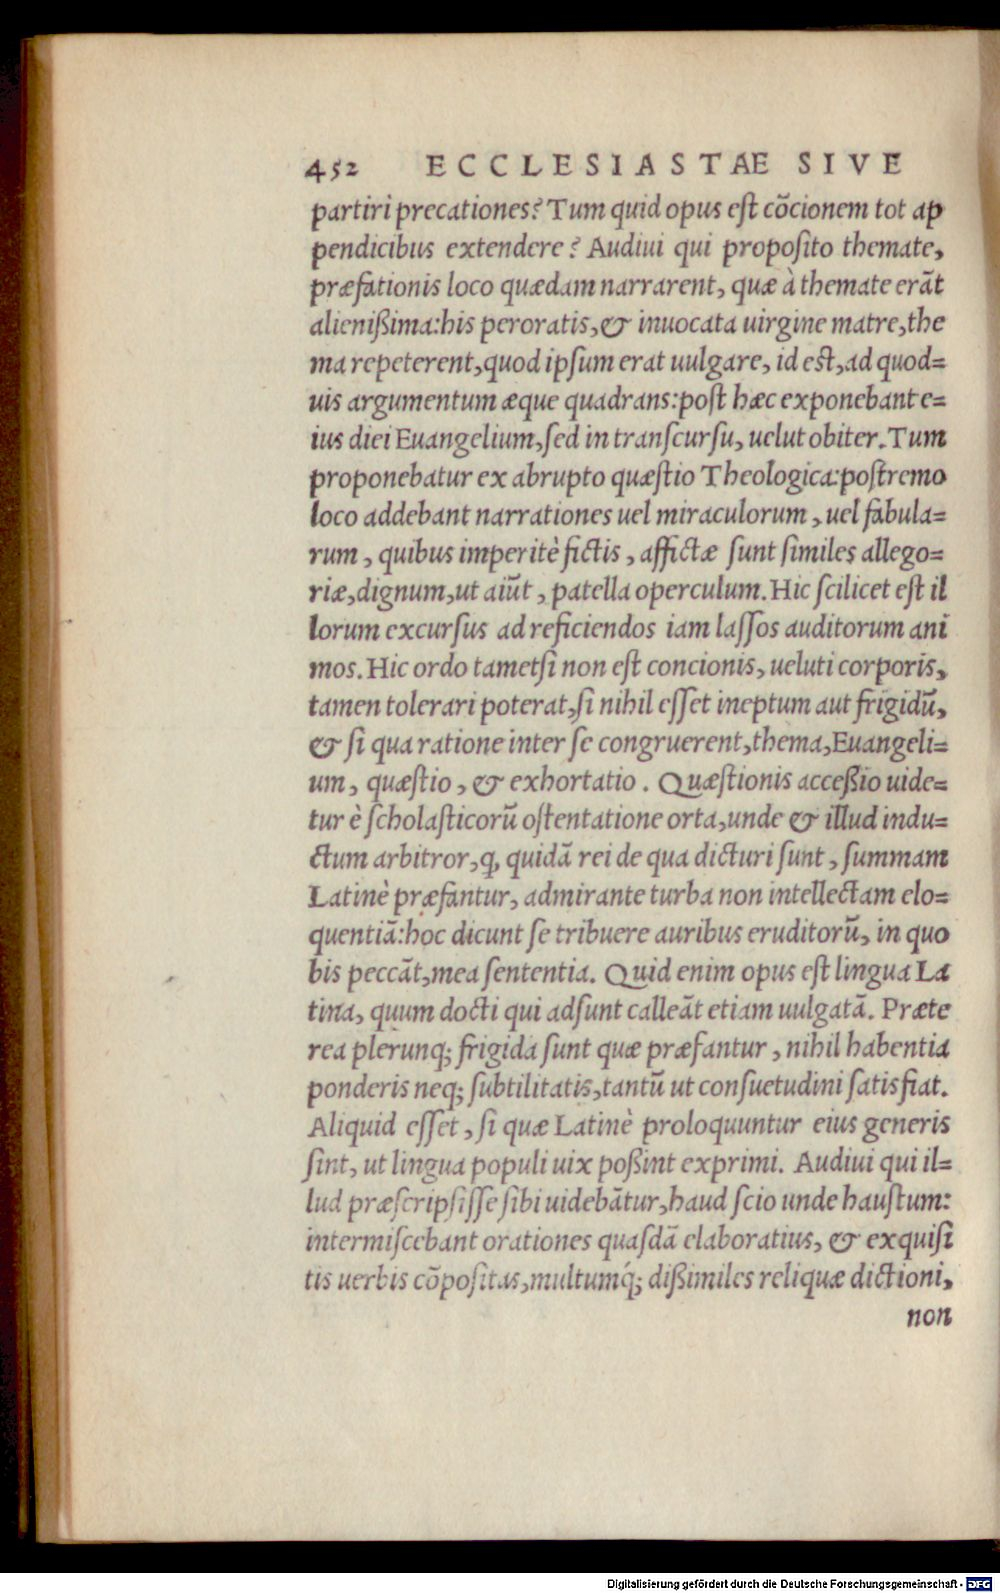 452 ECCLESIASTAE SIVE
partiri precationes? Tum quid opus est cõcionem tot ap
pendicibus extendere? Audiui qui proposito themate,
præfationis loco quædam narrarent, quæ à themate erãt
alienißima:his peroratis,& inuocata uirgine matre,the
ma repeterent,quod ipsum erat uulgare, id est,ad quod=
uis argumentum æque quadrans:post hæc exponebant e=
ius diei Euangelium,sed in transcursu, uelut obiter.Tum
proponebatur ex abrupto quæstio Theologica:postremo
loco addebant narrationes uel miraculorum, uel fabula=
rum, quibus imperitè fictis, affictæ sunt similes allego=
riæ,dignum,ut aiũt, patella operculum. Hic scilicet est il
lorum excursus ad reficiendos iam lassos auditorum ani
mos. Hic ordo tametsi non est concionis, ueluti corporis,
tamen tolerari poterat,si nihil esset ineptum aut frigidũ,
& si qua ratione inter se congruerent,thema,Euangeli=
um, quæstio, & exhortatio. Quæstionis acceßio uide=
tur è scholasticorũ ostentatione orta,unde & illud indu=
ctum arbitror,ꝙ, quidã rei de qua dicturi sunt, summam
Latinè præfantur, admirante turba non intellectam elo=
quentiã:hoc dicunt se tribuere auribus eruditorũ, in quo
bis peccãt,mea sententia. Quid enim opus est lingua La
tina, quum docti qui adsunt calleãt etiam uulgatã. Præte
rea plerunq; frigida sunt quæ præfantur, nihil habentia
ponderis neq; subtilitatis,tantũ ut consuetudini satisfiat.
Aliquid esset, si quæ Latinè proloquuntur eius generis
sint, ut lingua populi uix poßint exprimi. Audiui qui il=
lud præscripsisse sibi uidebãtur,haud scio unde haustum:
intermiscebant orationes quasdã elaboratius, & exquisi
tis uerbis cõpositas,multumq́; dißimiles reliquæ dictioni,
non
Digitalisierung gefördert durch die Deutsche Forschungsgemeinschaft - DFG